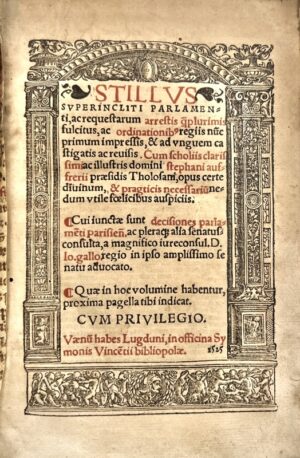 STILLVS
SVPERINCLITI PARLAMEN-
ti, ac requestarum arrestis q̃plurimis
fulcitus, ac ordinationibꝰ regiis nũc
primum impressis, & ad vnguem ca
stigatis ac reuisis. Cum scholiis claris
simi ac illustris domini stephani auf-
frerii præsidis Tholosañ, opus certe
diuinum, & pragticis necessariũ ne-
dum vtile fœlicibus auspiciis.
¶ Cui iunctæ sunt decisiones parla-
mēti parisieñ, ac pleraq̃ alia senatus
consulta, a magnifico iureconsul. D.
Io. gallo, regio in ipso amplissimo se
natu aduocato.
¶ Quæ in hoc volumine habentur,
proxima pagella tibi indicat.
CVM PRIVILEGIO.
Vænũ habes Lugduni, in officina Sy
monis Vincētii bibliopolæ.
1525